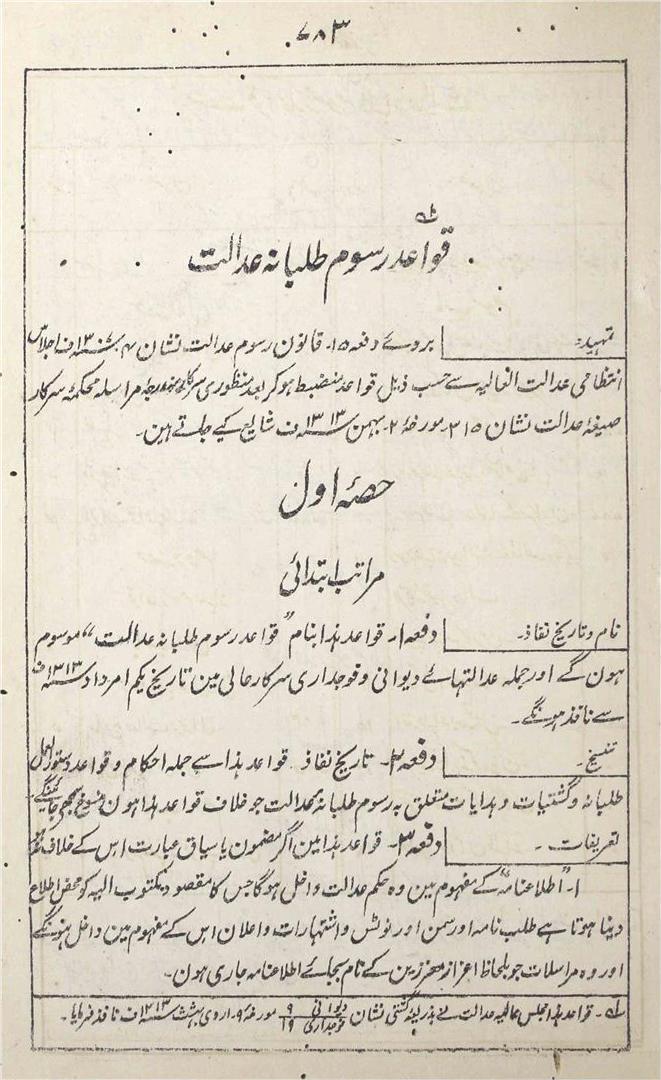 ۷۸۳
قواعد رسوم طلبانہ عدالت
تمہید: بروے دفعہ ۱۵۔ قانون رسوم عدالت نشان ۴ سنہ ۱۳۰۷ف اجلاس
انتظامی عدالت العالیہ سے حسب ذیل قواعد منضبط ہوکر بعد منظوری سرکار مندرجہ مراسلہ محکمۂ سرکار
صیغۂ عدالت نشان ۳۱۵۔ مورخۂ ۲۔ بہمن سنہ ۱۳۱۳ف شایع کیے جاتے ہین۔
حصۂ اول
مراتب ابتدائی
نام و تاریخ نفاذ۔ دفعہ ۱۔ قواعد ہذا بنام ”قواعد رسوم طلبانہ عدالت“ موسوم
ہون گے اور جملہ عدالتہائے دیوانی و فوجداری سرکار عالی مین تاریخ یکم امرداد سنہ ۱۳۱۳ف
سے نافذ ہونگے۔
تنسیخ۔ دفعہ ۲۔ تاریخ نفاذ قواعد ہذا سے جملہ احکام و قواعد دستور العمل
طلبانہ و گشتیات و ہدایات متعلق بہ رسوم طلبانہ عدالت جو خلاف قواعد ہذا ہون منسوخ سمجھی جائینگے۔
تعریفات۔ دفعہ ۳۔ قواعد ہذا مین اگر مضمون یا سیاق عبارت اس کے خلاف نہو
۱۔ ”اطلاعنامہ“ کے مفہوم مین وہ حکم عدالت داخل ہوگا جس کا مقصود مکتوب الیہ کو محض اطلاع
دینا ہوتا ہے طلب نامہ اور سمن اور نوٹس و اشتہارات و اعلان اس کے مفہوم مین داخل ہونگے
اور وہ مراسلات جو بلحاظ اعزاز معززین کے نام بجائے اطلاعنامہ جاری ہون۔
لہ۔ قواعد ہذا مجلس عالیہ عدالت نے بذریعہ گشتی نشان دیوانی ۹ فوجداری ۱۹ مورخۂ ۹۔ اردی بہشت سنہ ۱۳۱۳ف نافذ فرمایا۔